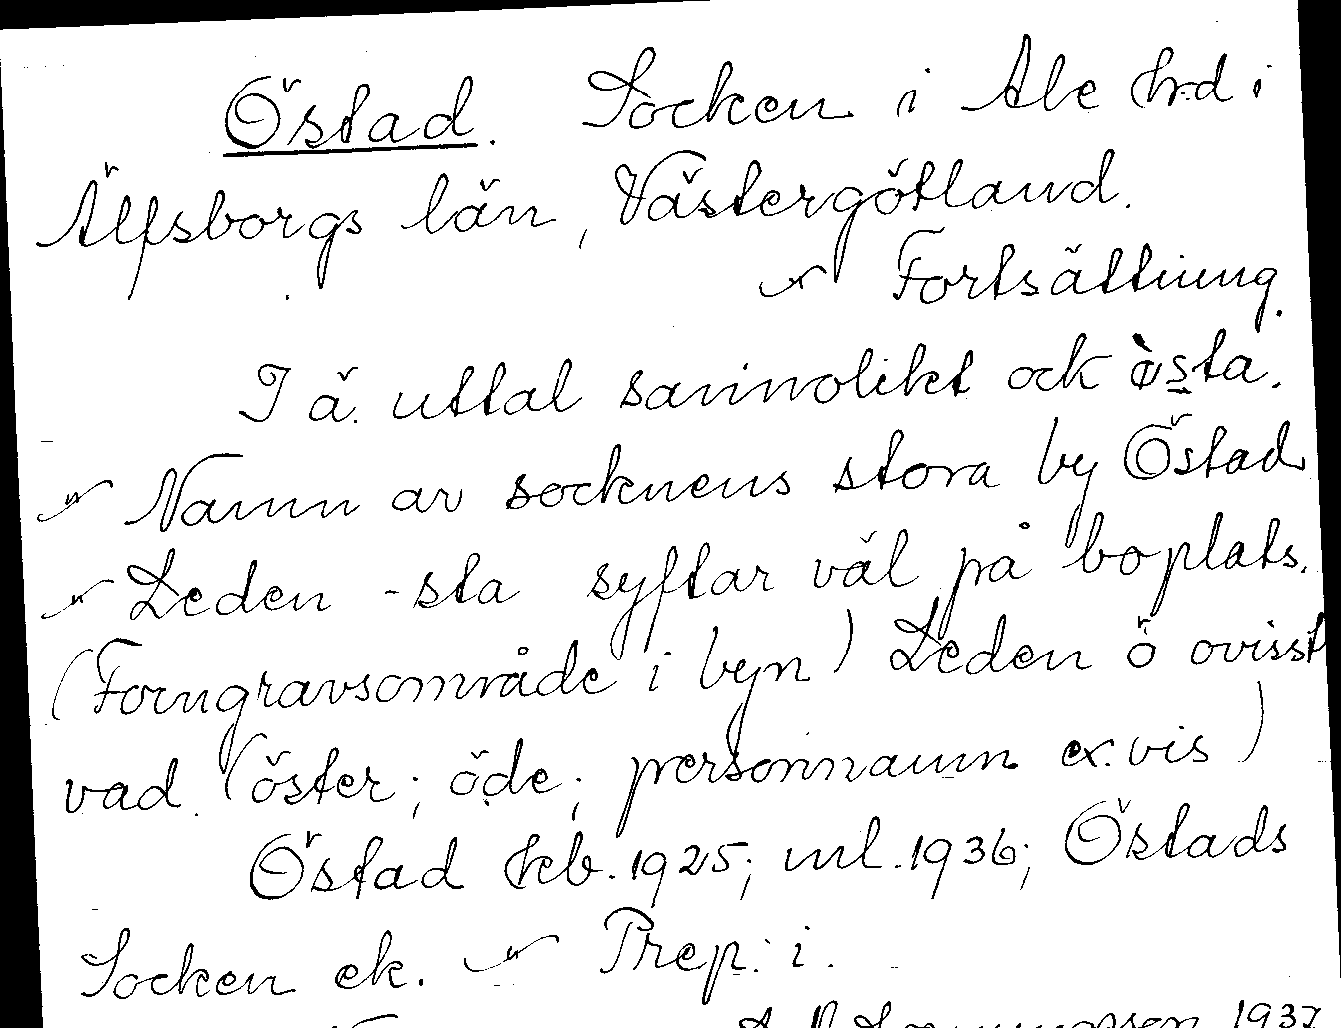 Östad. Socken i Ale hrd i
Älfsborgs län, Västergötland.
Fortsättning.
I ä. uttal sannolikt ock östa.
Namn av socknens stora by Östad
Leden -sta syftar väl på boplats.
(Forngravsområde i byn) Leden ö ovisst
vad. (öster; öde; personnamn ex.vis)
Östad hcb. 1925; ml. 1936; Östads
Socken ek. Prep: i.
1937